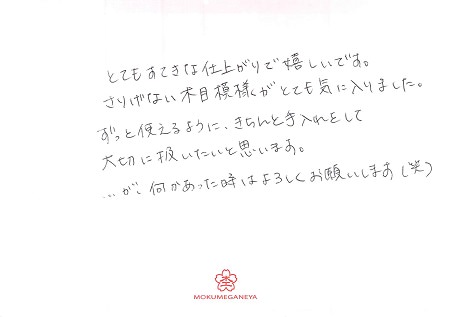 とてもすてきな仕上がりで嬉しいです。
さりげない木目模様がとても気に入りました。
ずっと使えるように、きちんと手入れをして
大切に扱いたいと思います。
…が、何かあった時はよろしくお願いします(笑)
MOKUMEGANEYA